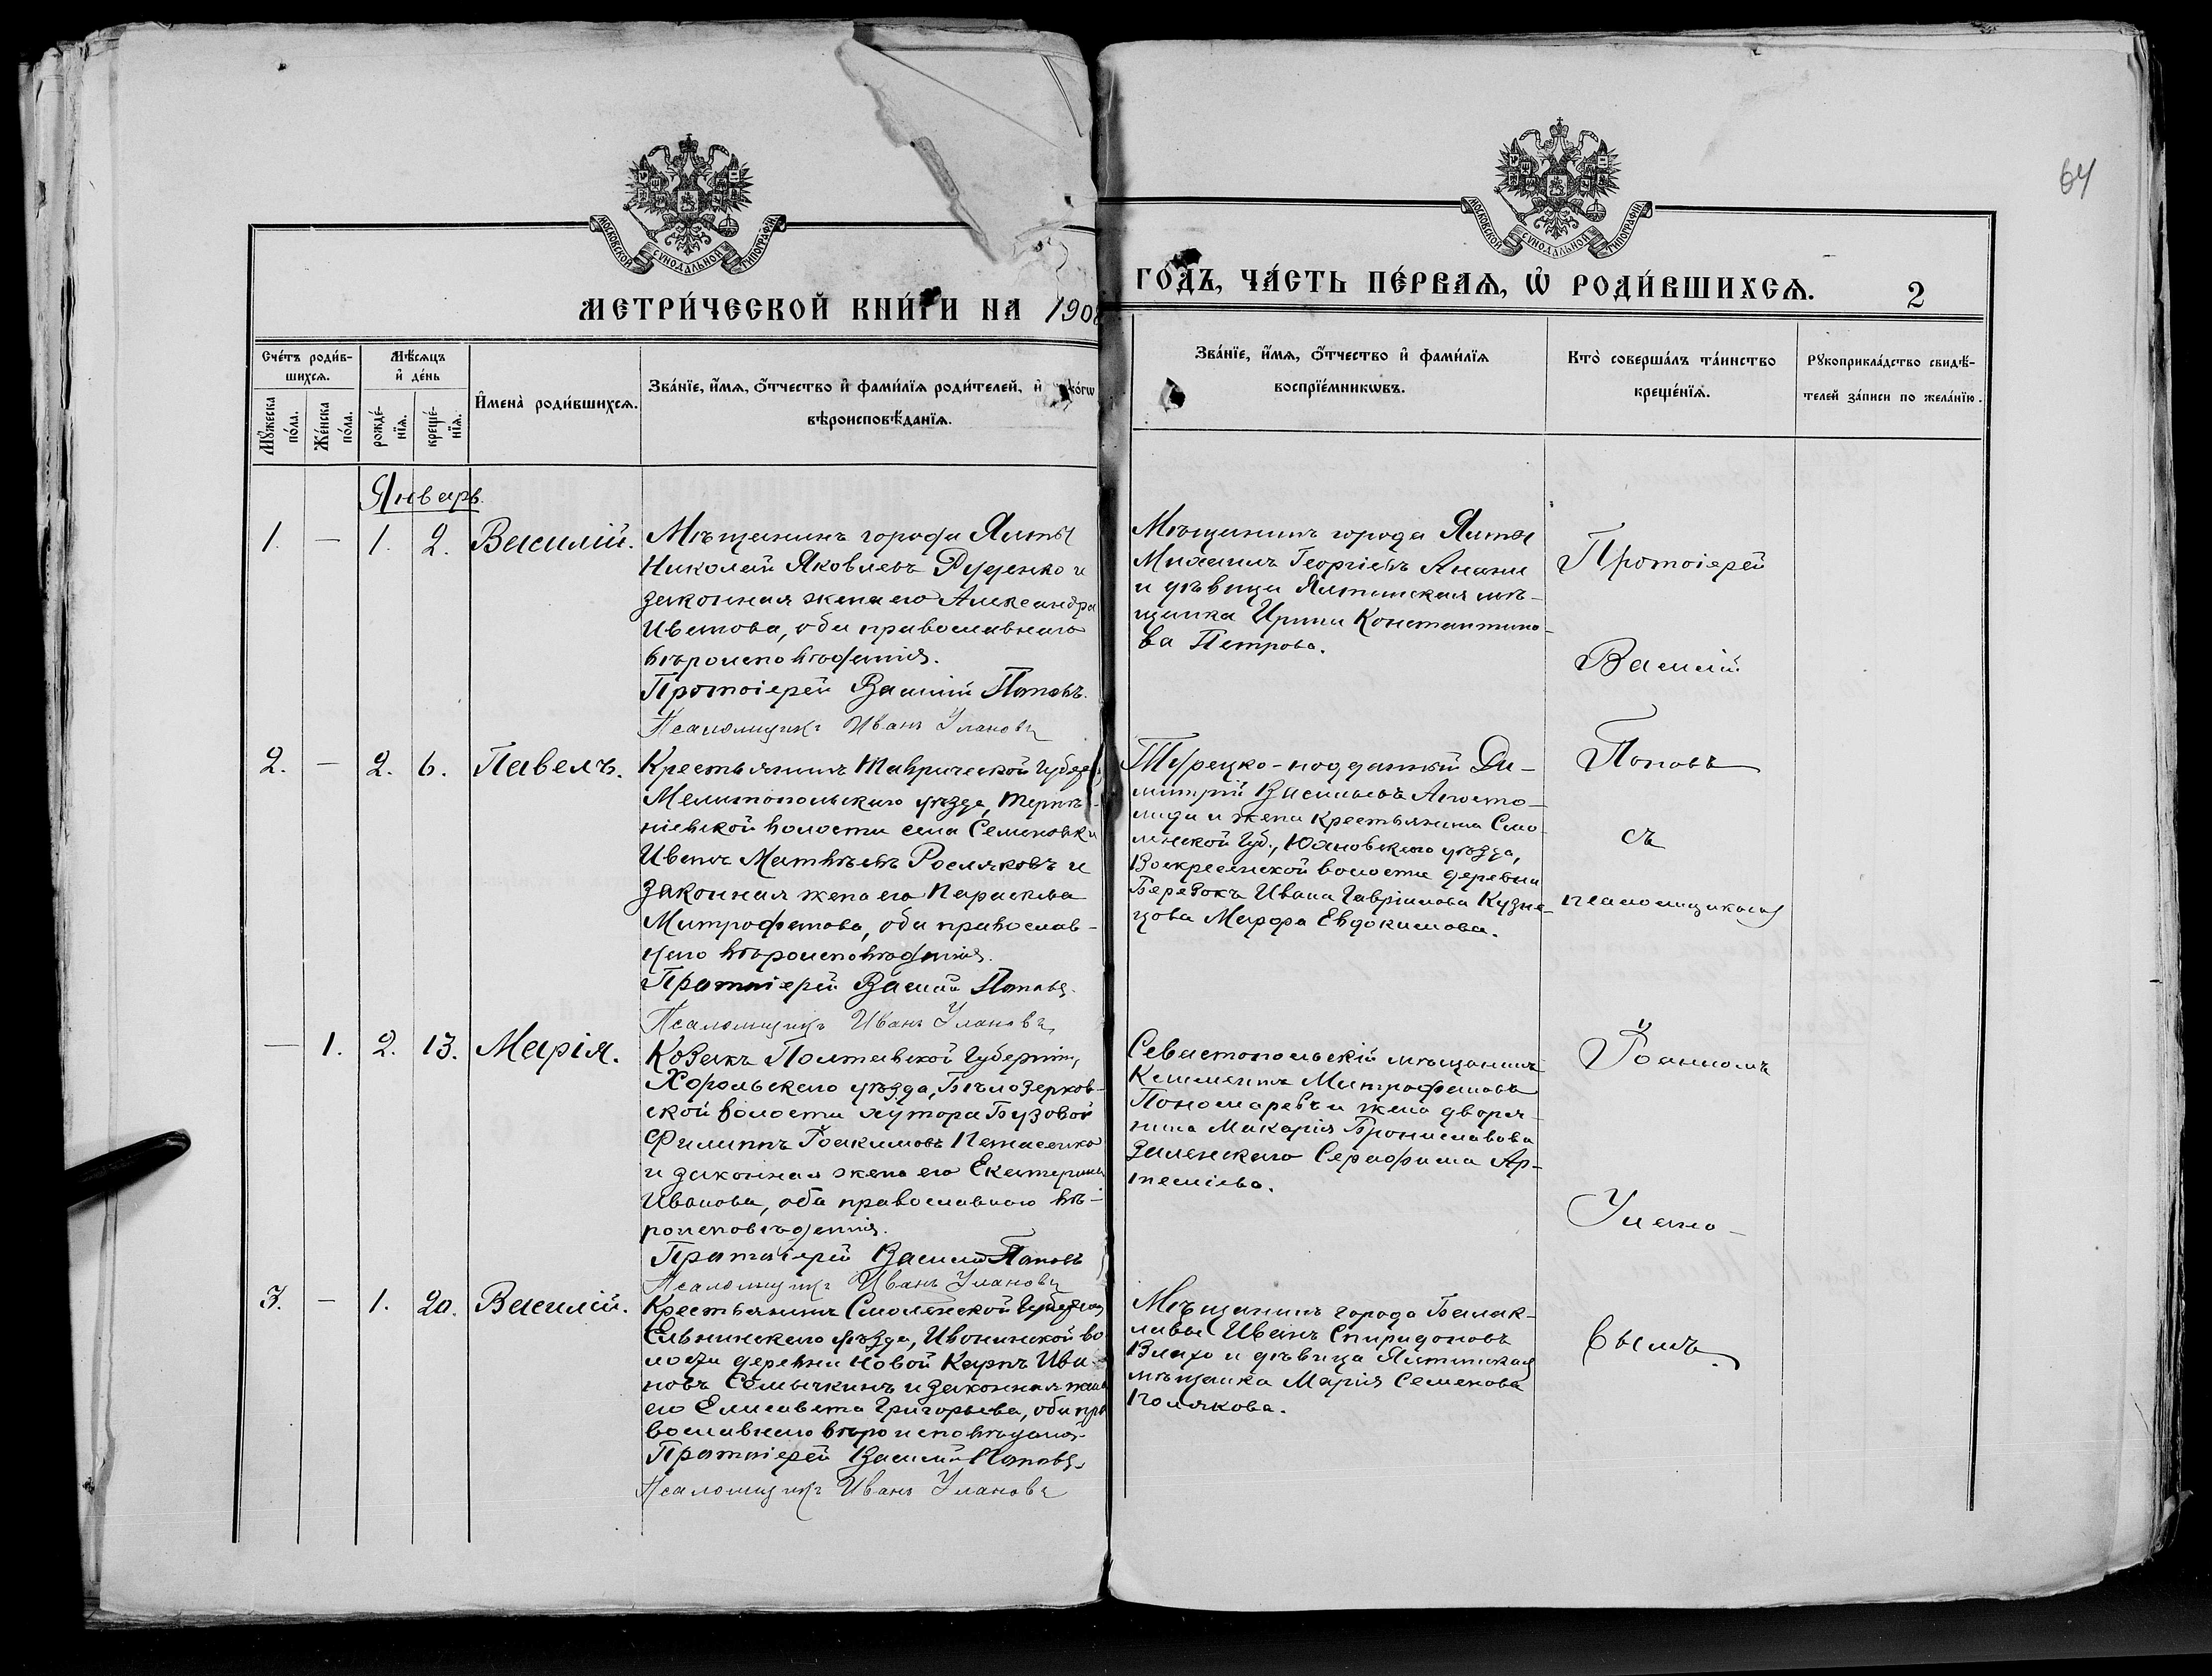 64
МОСКОВСКОЙ СѴНОДАЛЬНОЙ ТИПОГРАФІИ
МОСКОВСКОЙ СѴНОДАЛЬНОЙ ТИПОГРАФІИ
МЕТРИ́ЧЕСКОЙ КНИ́ГИ НА 1908
ГО́ДЪ, ЧА́СТЬ ПЕ́РВАѦ, Ѡ҆ РОДИ́ВШИХСѦ.
2
Сче́тъ роди́в-
шихсѧ.
Мѣ́сѧцъ
и҆ де́нь
Мꙋ́жеска по́ла.
Же́нска по́ла.
рожде́-
нїѧ.
креще́-
нїѧ.
И҆мена̀ роди́вшихсѧ.
Зва́нїе, и҆́мѧ, ѻ҆́тчество и҆ фами́лїѧ роди́телей, и҆ ко́гѡ
вѣроисповѣ́данїѧ.
Зва́нїе, и҆́мѧ, ѻ҆́тчество и҆ фами́лїѧ
воспрїе́мникѡвъ.
Кто̀ соверша́лъ та́инство
креще́нїѧ.
Рꙋкоприкла́дство свидѣ́-
телей за́писи по жела́нїю.
Январь.
1. — 1. 2. Василій.
Мѣщанинъ города Ялты
Николай Яковлевъ Руденко и
законная жена его Александра
Иванова, оба православнаго
вѣроисповѣданія.
Протоіерей Василій Поповъ.
Псаломщикъ Иванъ Улановъ
Мѣщанинъ города Ялты
Михаилъ Георгіевъ Анани
и дѣвица Ялтинская мѣ-
щанка Ирина Константино-
ва Петрова.
2. — 2. 6. Павелъ.
Крестьянинъ Таврической Губерніи,
Мелитопольскаго уѣзда, Терпѣ-
ніевской волости села Семеновки
Иванъ Матвѣевъ Росляковъ и
законная жена его Параскева
Митрофанова, оба православ-
наго вѣроисповѣданія.
Протоіерей Василій Поповъ.
Псаломщикъ Иванъ Улановъ
Турецко-подданный Ди-
митрій Васильевъ Апосто-
лиди и жена крестьянина Смо-
ленской Губ., Юхновскаго уѣзда,
Воскресенской волости деревни
Березокъ Ивана Гавріилова Кузне-
цова Марфа Евдокимова.
— 1. 2. 13. Марія.
Козакъ Полтавской Губерніи,
Хорольскаго уѣзда, Бѣлоцерков-
ской волости хутора Бузовой
Филиппъ Іоакимовъ
и законная жена его Екатерина
Иванова, оба православнаго вѣ-
роисповѣданія.
Протоіерей Василій Поповъ
Псаломщикъ Иванъ Улановъ
Севастопольскій мѣщанинъ
Климентъ Митрофановъ
Пономаревъ и жена дворя-
нина Макарія Брониславова
Зеленскаго Серафима Ар-
теміева.
3. — 1. 20. Василій.
Крестьянинъ Смоленской Губерніи
Ельнинскаго уѣзда, Ивонинской во-
лости деревни Новой Карпъ Ива-
новъ Семычкинъ и законная жена
его Елисавета Григорьева, оба пра-
вославнаго вѣроисповѣданія.
Протоіерей Василій Поповъ
Псаломщикъ Иванъ Улановъ
Мѣщанинъ города Балак-
лавы Иванъ Спиридоновъ
Влахо и дѣвица Ялтинская
мѣщанка Марія Семенова
Полякова.
Протоіерей
Василій
Поповъ
съ
псаломщикомъ
Іоанномъ
Улано-
вымъ.